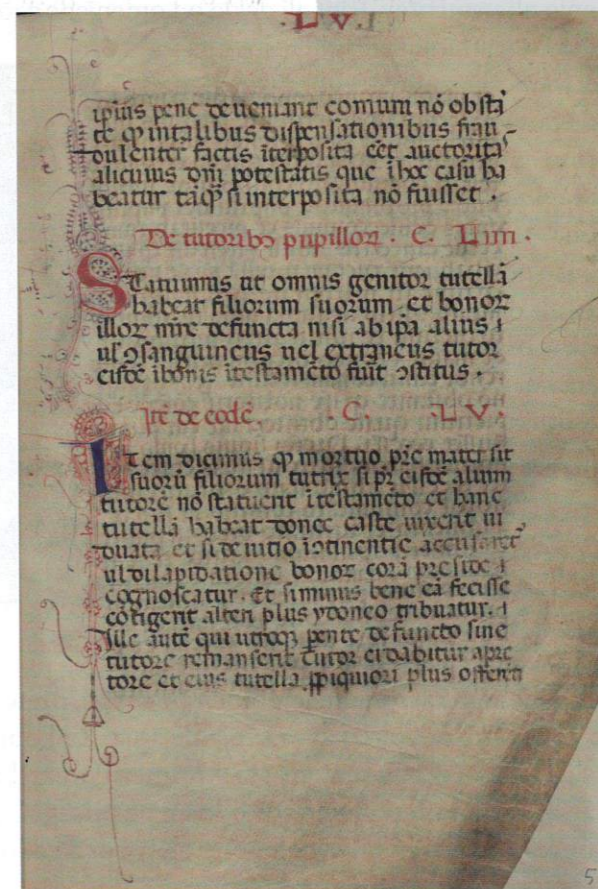 · L V ·
ip̄ius pene deueniant comuni nō obstā
te q̄ intalibus dispensationibus frau-
dulenter factis īterposita eēt auctorita
alicuius dn̄i potestatis que īhoc casu ha
beatur tāq̄ si interposita nō fuisset .
De tutorib9 pupilloꝝ . C. L IIII .
STatuimus ut omnis genitor tutellā
habeat filiorum suorum et bonoꝝ
illoꝝ mr̄e defuncta nisi ab ip̄a alius
ul̄ ꝯsanguineus uel extraneus tutor
eisdē ībonis ītestamēto fuīt ꝯstitus .
Itē de eodē . C. L V .
ITem dicimus q̄ mortuo pr̄e mater sit
suorū filiorum tutrix si pr̄ eisdē alium
tutorē nō statuerit ītestamēto et hanc
tutellā habeat donec caste uixerit ui
duata et si de uitio īꝯtinentie accusaret̄
ul̄ dilapidatione bonoꝝ corā preside
cognoscatur . Et si minus bene eā fecisse
cōtigerit alteri plus ydoneo tribuatur .
Ille autē qui utroqꝫ ꝑente defuncto sine
tutore remanserit tutor ei dabitur apre
tore et eius tutella ꝓpiquiori plus offerēti
5